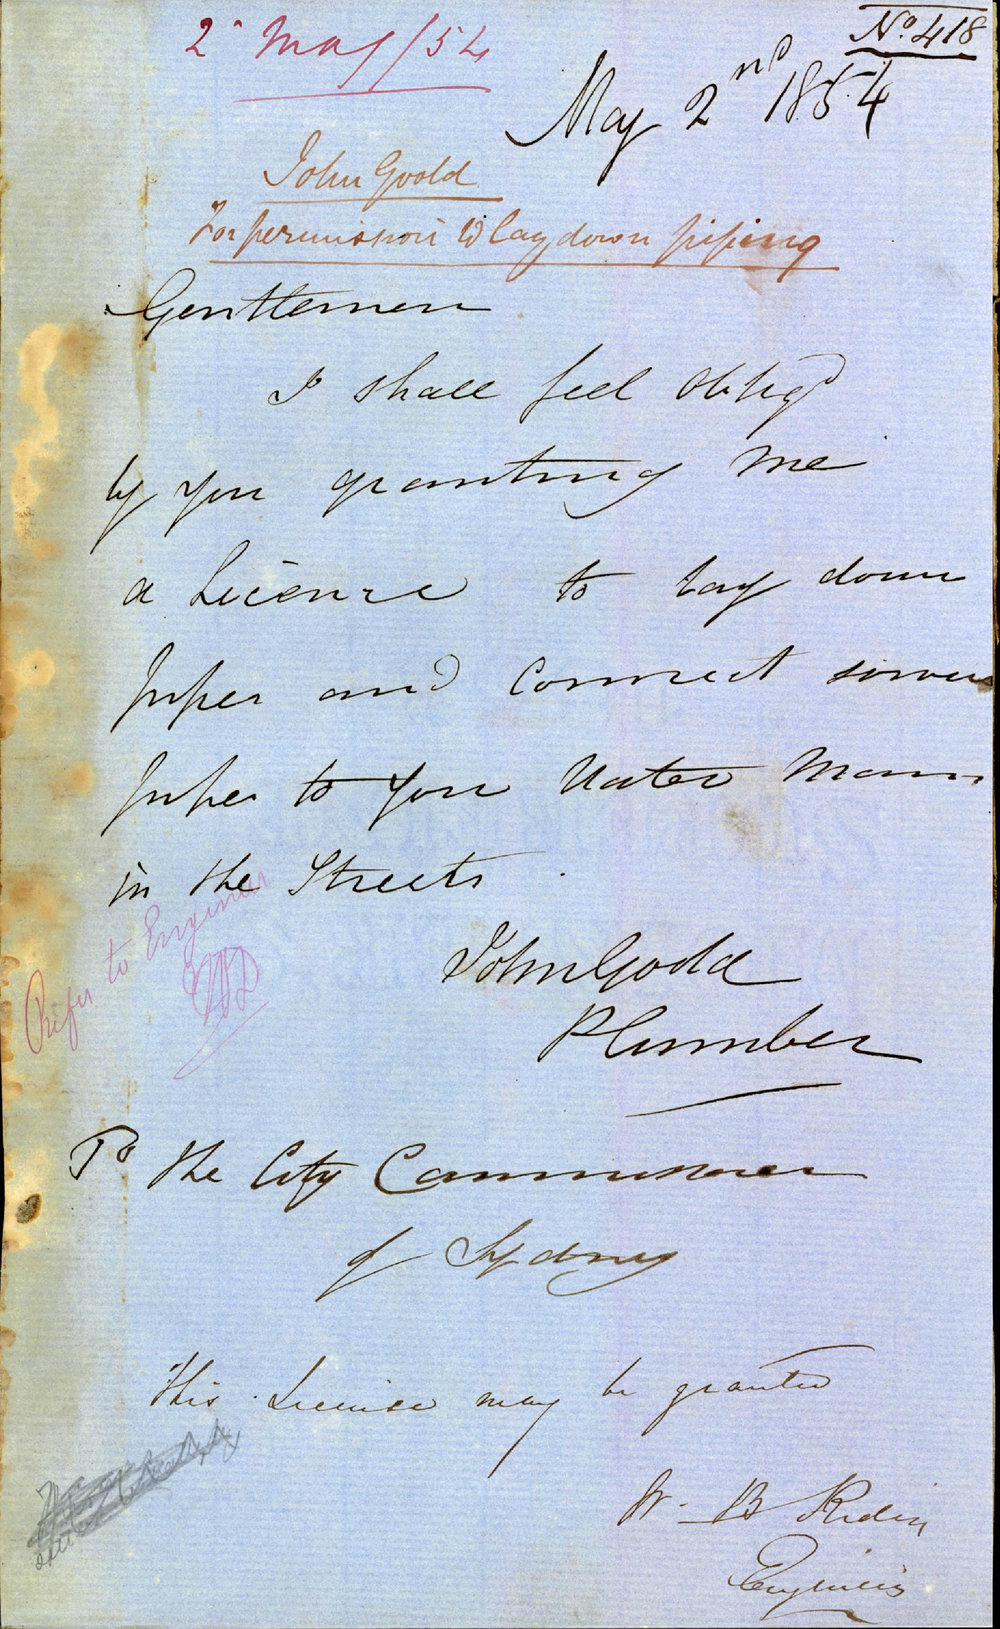 No. 418
2 May/54
May 2nd 1854
John Goold
For permission to lay down piping
Gentlemen
I shall feel Obligd
by you granting me
a Licence to lay down
pipes and Connect service
pipes to your Water Mains
in the Streets
Refer to Engineer
John Goold
Plumber
To the City Commissioner
of Sydney
This License may be granted
W. B. Rider
Engineer